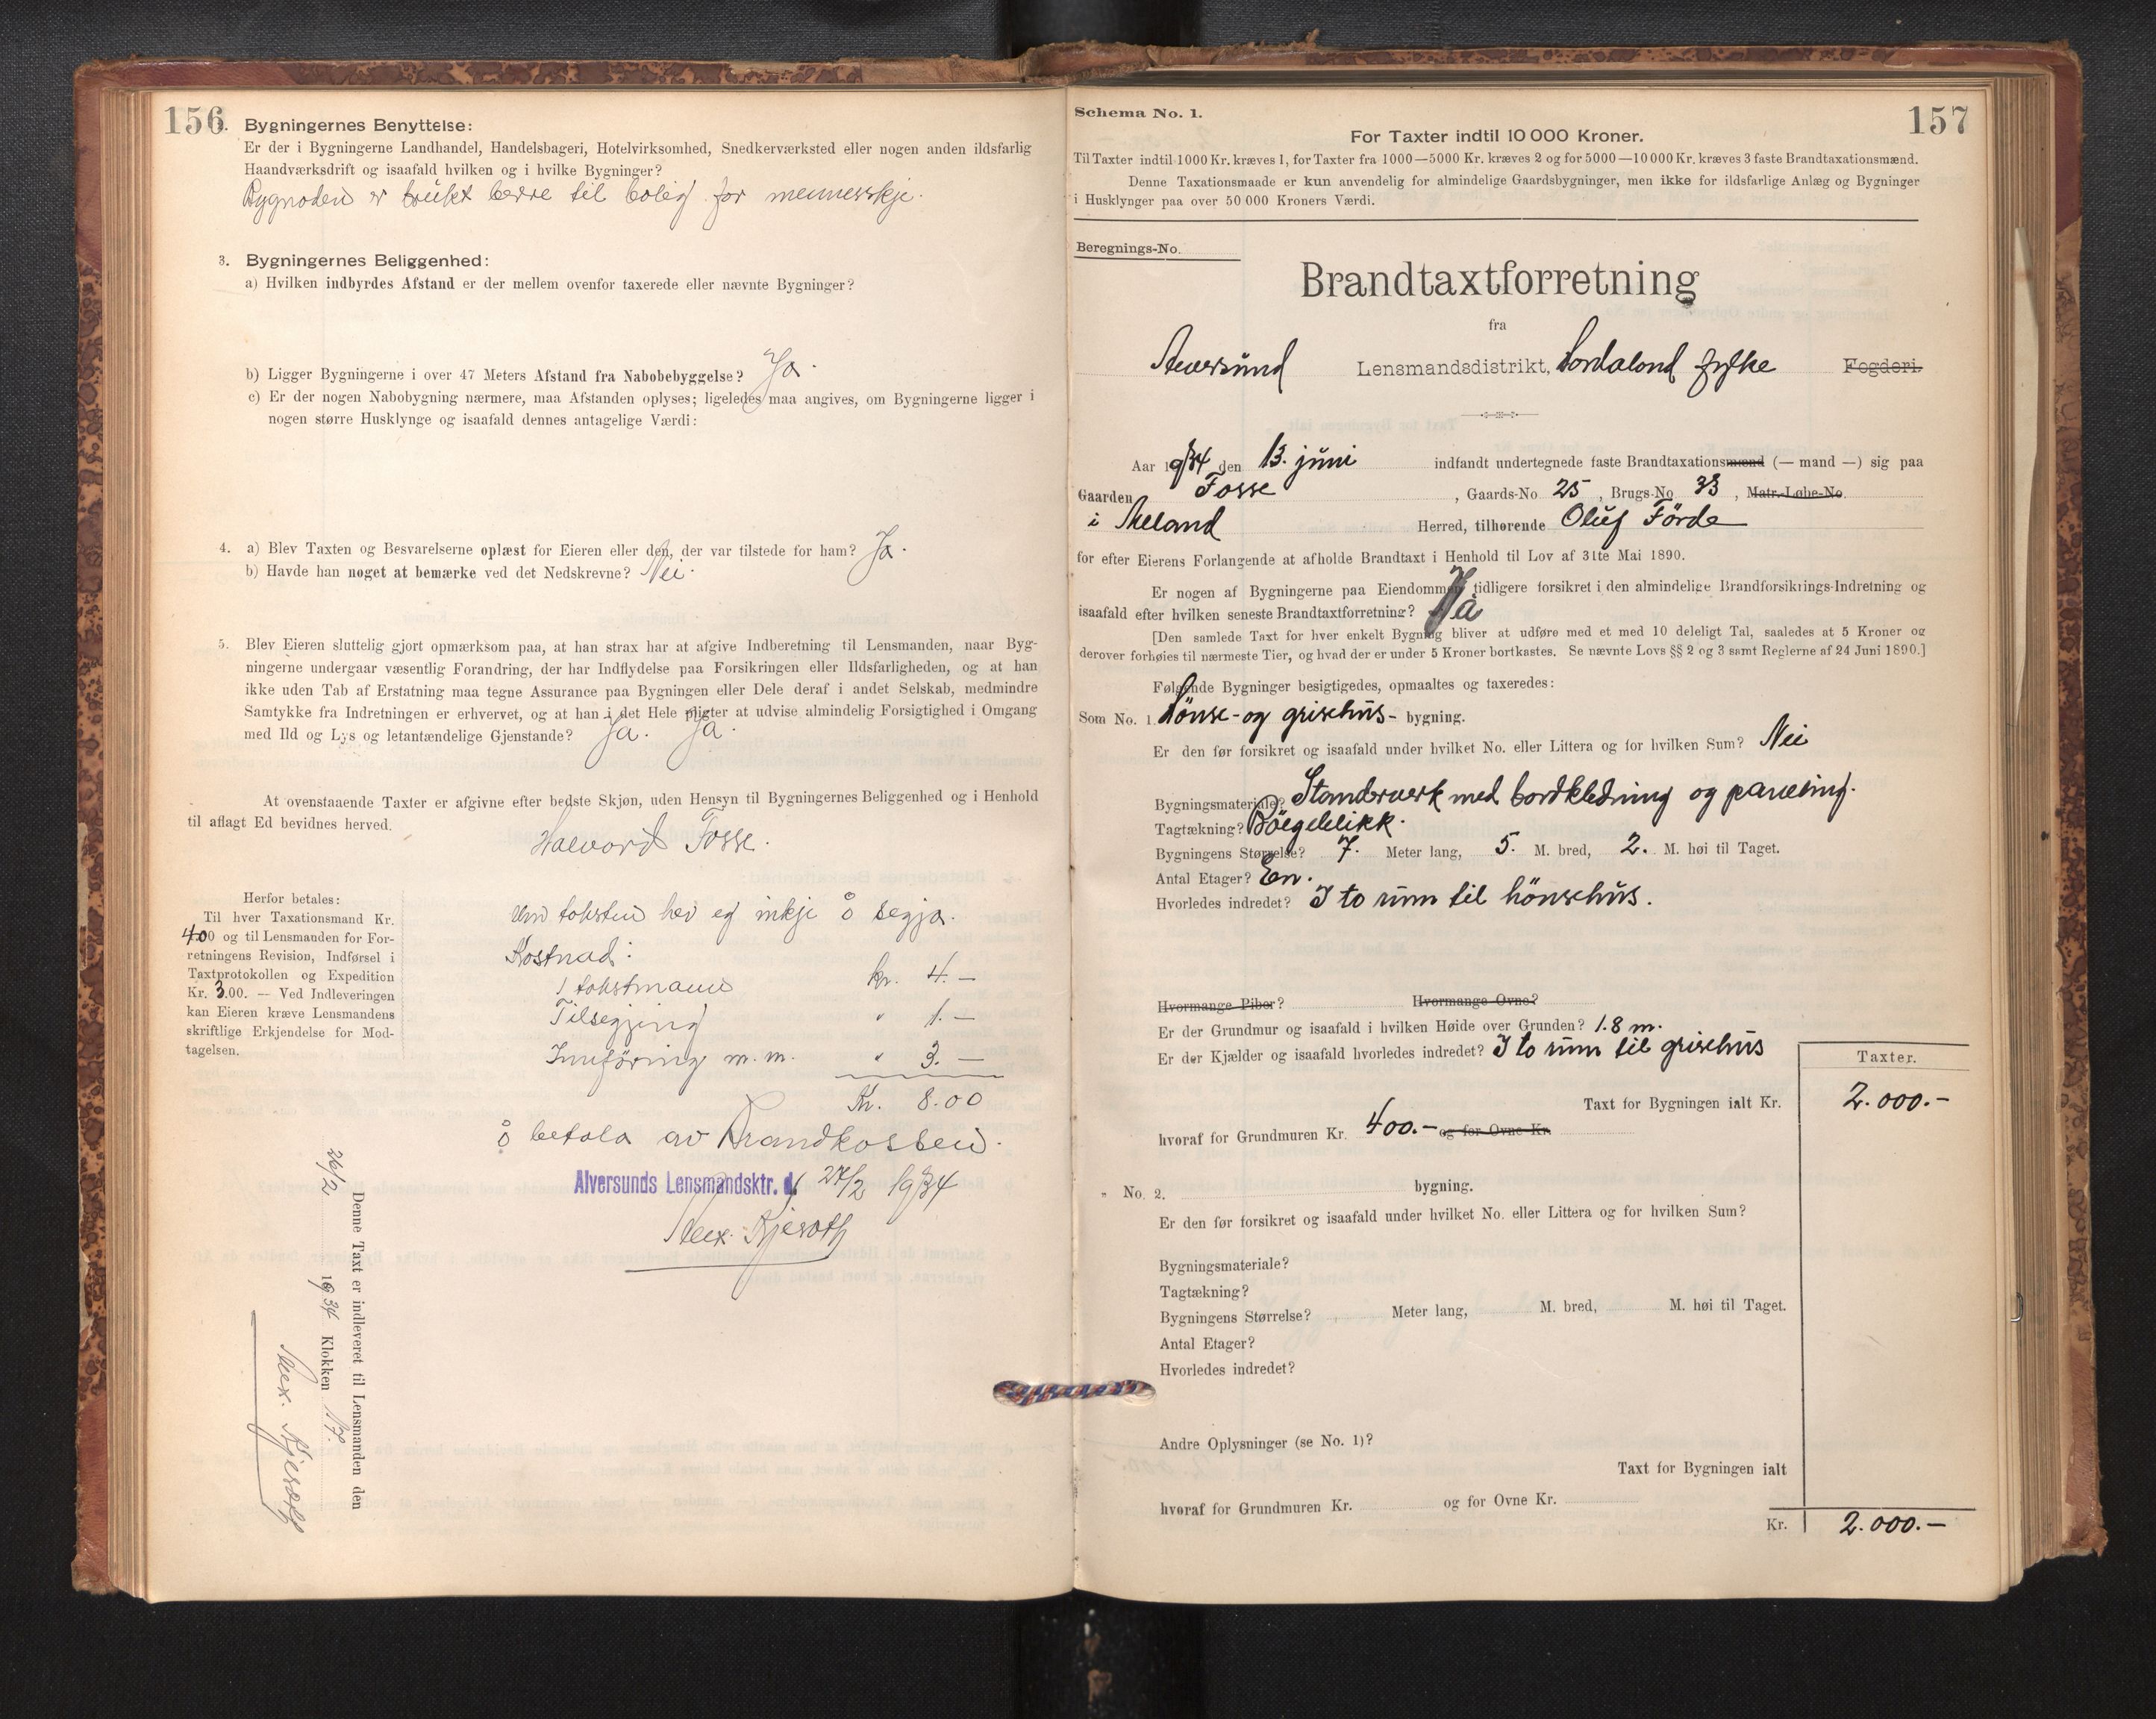 156
2. Bygningernes Benyttelse:
Er der i Bygningerne Landhandel, Handelsbageri, Hotelvirksomhed, Snedkerværksted eller nogen anden ildsfarlig
Haandværksdrift og isaafald hvilken og i hvilke Bygninger?
Bygnoden er brukt berre til bolig for menneskje.
3. Bygningernes Beliggenhed:
a) Hvilken indbyrdes Afstand er der mellem ovenfor taxerede eller nævnte Bygninger?
b) Ligger Bygningerne i over 47 Meters Afstand fra Nabobebyggelse? Ja.
c) Er der nogen Nabobygning nærmere, maa Afstanden oplyses; ligeledes maa angives, om Bygningerne ligger i
nogen større Husklynge og isaafald dennes antagelige Værdi:
4. a) Blev Taxten og Besvarelserne oplæst for Eieren eller den, der var tilstede for ham? Ja.
b) Havde han noget at bemærke ved det Nedskrevne? Nei.
5. Blev Eieren sluttelig gjort opmærksom paa, at han strax har at afgive Indberetning til Lensmanden, naar Byg-
ningerne undergaar væsentlig Forandring, der har Indflydelse paa Forsikringen eller Ildsfarligheden, og at han
ikke uden Tab af Erstatning maa tegne Assurance paa Bygningen eller Dele deraf i andet Selskab, medmindre
Samtykke fra Indretningen er erhvervet, og at han i det Hele pligter at udvise almindelig Forsigtighed i Omgang
med Ild og Lys og letantændelige Gjenstande? Ja. Ja.
At ovenstaaende Taxter er afgivne efter bedste Skjøn, uden Hensyn til Bygningernes Beliggenhed og i Henhold
til aflagt Ed bevidnes herved.
Halvard Fosse.
Herfor betales:
Til hver Taxationsmand Kr.
4.00 og til Lensmanden for For-
retningens Revision, Indførsel i
Taxtprotokollen og Expedition
Kr. 3.00. — Ved Indleveringen
kan Eieren kræve Lensmandens
skriftlige Erkjendelse for Mod-
tagelsen.
Um taksten hev eg inkje å segja.
Kostnad:
1 takstmann kr. 4.—
Tilsegjing " 1.—
Innföring m.m. " 3.—
Kr. 8.00
å betala av Brandkassen.
Alversunds Lensmandsktr. d. 27/2 1934
Alex. Kjeroth
Denne Taxt er indleveret til Lensmanden den
26/2 1934 Klokken 17.
Alex. Kjeroth
157
Schema No. 1.
For Taxter indtil 10 000 Kroner.
Til Taxter indtil 1000 Kr. kræves 1, for Taxter fra 1000—5000 Kr. kræves 2 og for 5000—10 000 Kr. kræves 3 faste Brandtaxationsmænd.
Denne Taxationsmaade er kun anvendelig for almindelige Gaardsbygninger, men ikke for ildsfarlige Anlæg og Bygninger
i Husklynger paa over 50 000 Kroners Værdi.
Beregnings-No.
Brandtaxtforretning
fra
Alversund Lensmandsdistrikt, Hordaland fylke Fogderi.
Aar 1934 den 13. juni indfandt undertegnede faste Brandtaxationsmænd (— mand —) sig paa
Gaarden Fosse, Gaards-No 25, Brugs-No 33, Matr.-Løbe-No.
i Meland Herred, tilhørende Oluf Förde
for efter Eierens Forlangende at afholde Brandtaxt i Henhold til Lov af 31te Mai 1890.
Er nogen af Bygningerne paa Eiendommen tidligere forsikret i den almindelige Brandforsikrings-Indretning og
isaafald efter hvilken seneste Brandtaxtforretning? Ja
[Den samlede Taxt for hver enkelt Bygning bliver at udføre med et med 10 deleligt Tal, saaledes at 5 Kroner og
derover forhøies til nærmeste Tier, og hvad der er under 5 Kroner bortkastes. Se nævnte Lovs §§ 2 og 3 samt Reglerne af 24 Juni 1890.]
Følgende Bygninger besigtigedes, opmaaltes og taxeredes:
Som No. 1. Hönse- og grisehus- bygning.
Er den før forsikret og isaafald under hvilket No. eller Littera og for hvilken Sum? Nei
Bygningsmateriale? Standerverk med bordkledning og paneling.
Tagtækning? Bölgeblikk.
Bygningens Størrelse? 7. Meter lang, 5. M. bred, 2. M. høi til Taget.
Antal Etager? En.
Hvorledes indredet? I to rum til hönsehus.
Hvormange Piber? Hvormange Ovne?
Er der Grundmur og isaafald i hvilken Høide over Grunden? 1.8 m.
Er der Kjælder og isaafald hvorledes indredet? I to rum til grisehus
Taxter.
Taxt for Bygningen ialt Kr. 2.000.—
hvoraf for Grundmuren Kr. 400.— og for Ovne Kr.
" No. 2. bygning.
Er den før forsikret og isaafald under hvilket No. eller Littera og for hvilken Sum?
Bygningsmateriale?
Tagtækning?
Bygningens Størrelse? Meter lang, M. bred, M. høi til Taget.
Antal Etager?
Hvorledes indredet?
Andre Oplysninger (se No. 1)?
Taxt for Bygningen ialt
hvoraf for Grundmuren Kr. og for Ovne Kr.
Kr. 2.000.—